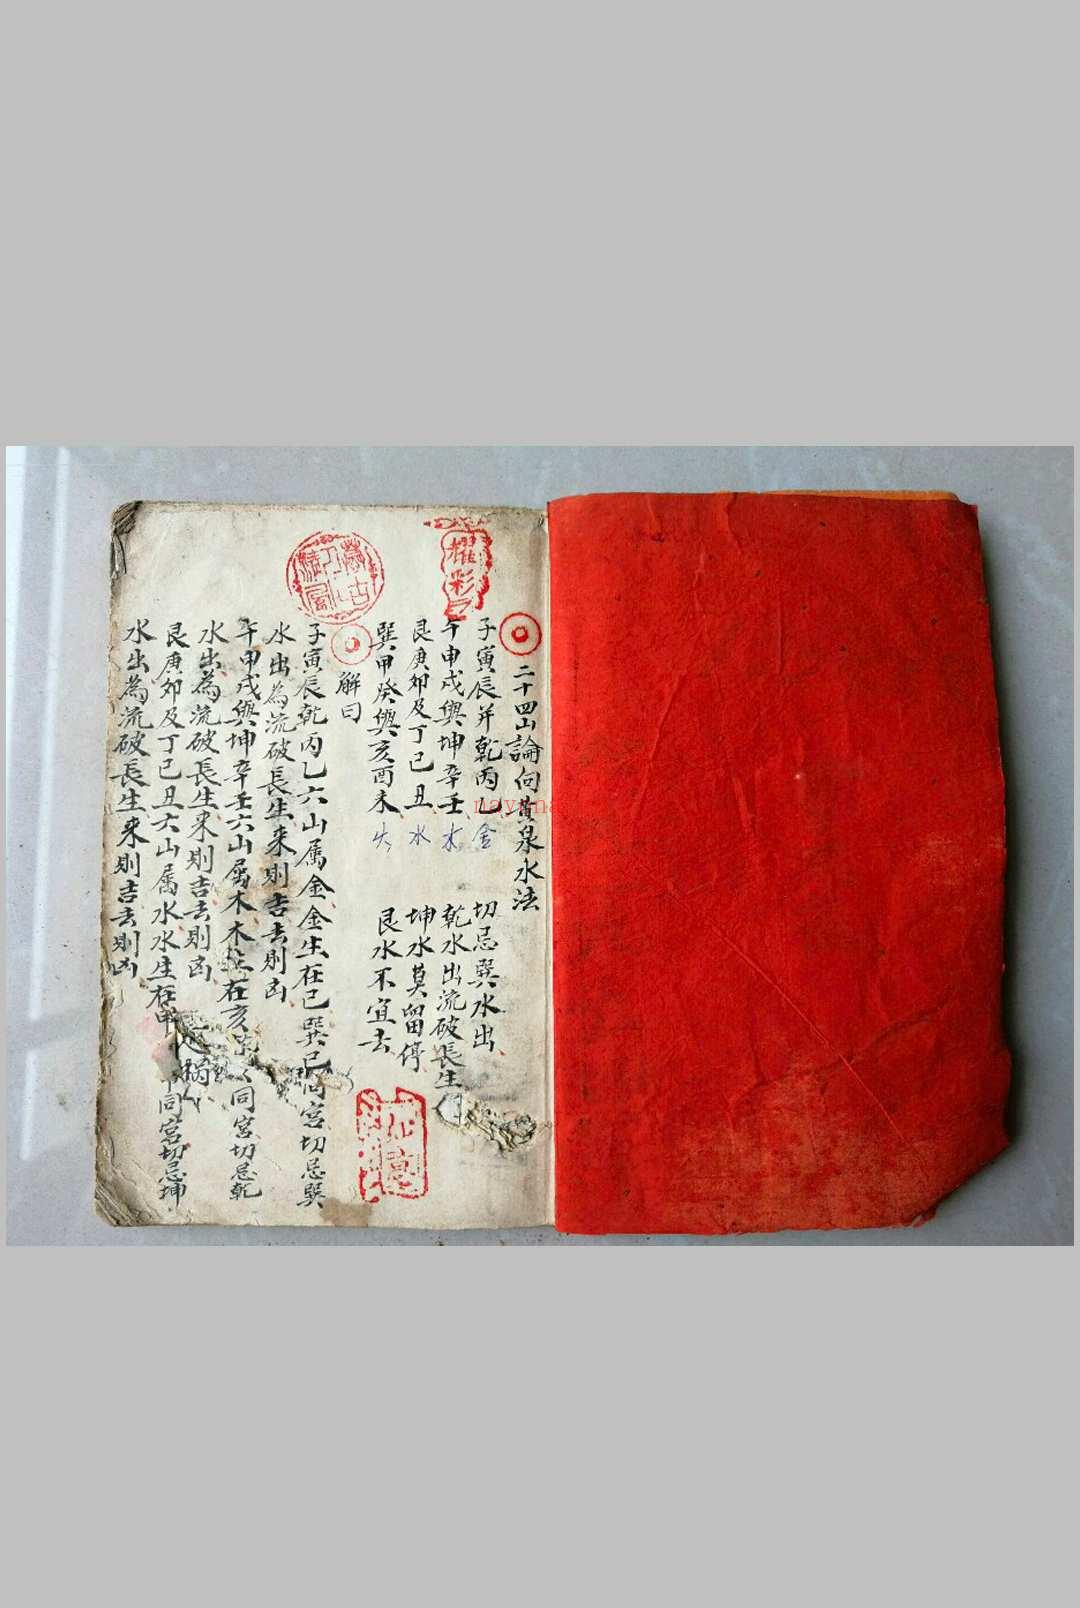 二十四山論向黃泉水法
子寅辰并乾丙乙 金 切忌巽水出
午申戌與坤辛壬 木 乾水出流破長生
艮庚卯及丁已丑 水 坤水莫留停
巽甲癸與亥酉未 火 艮水不宜去
解曰
子寅辰乾丙乙六山属金金生在已巽已同宮切忌巽
水出為流破長生來則吉去則凶
午申戌與坤辛壬六山属木木在亥同宮切忌乾
水出為流破長生來則吉去則凶
艮庚卯及丁已丑六山属水水生在申同宮切忌坤
水出為流破長生來則吉去則凶
耀彩
nayona